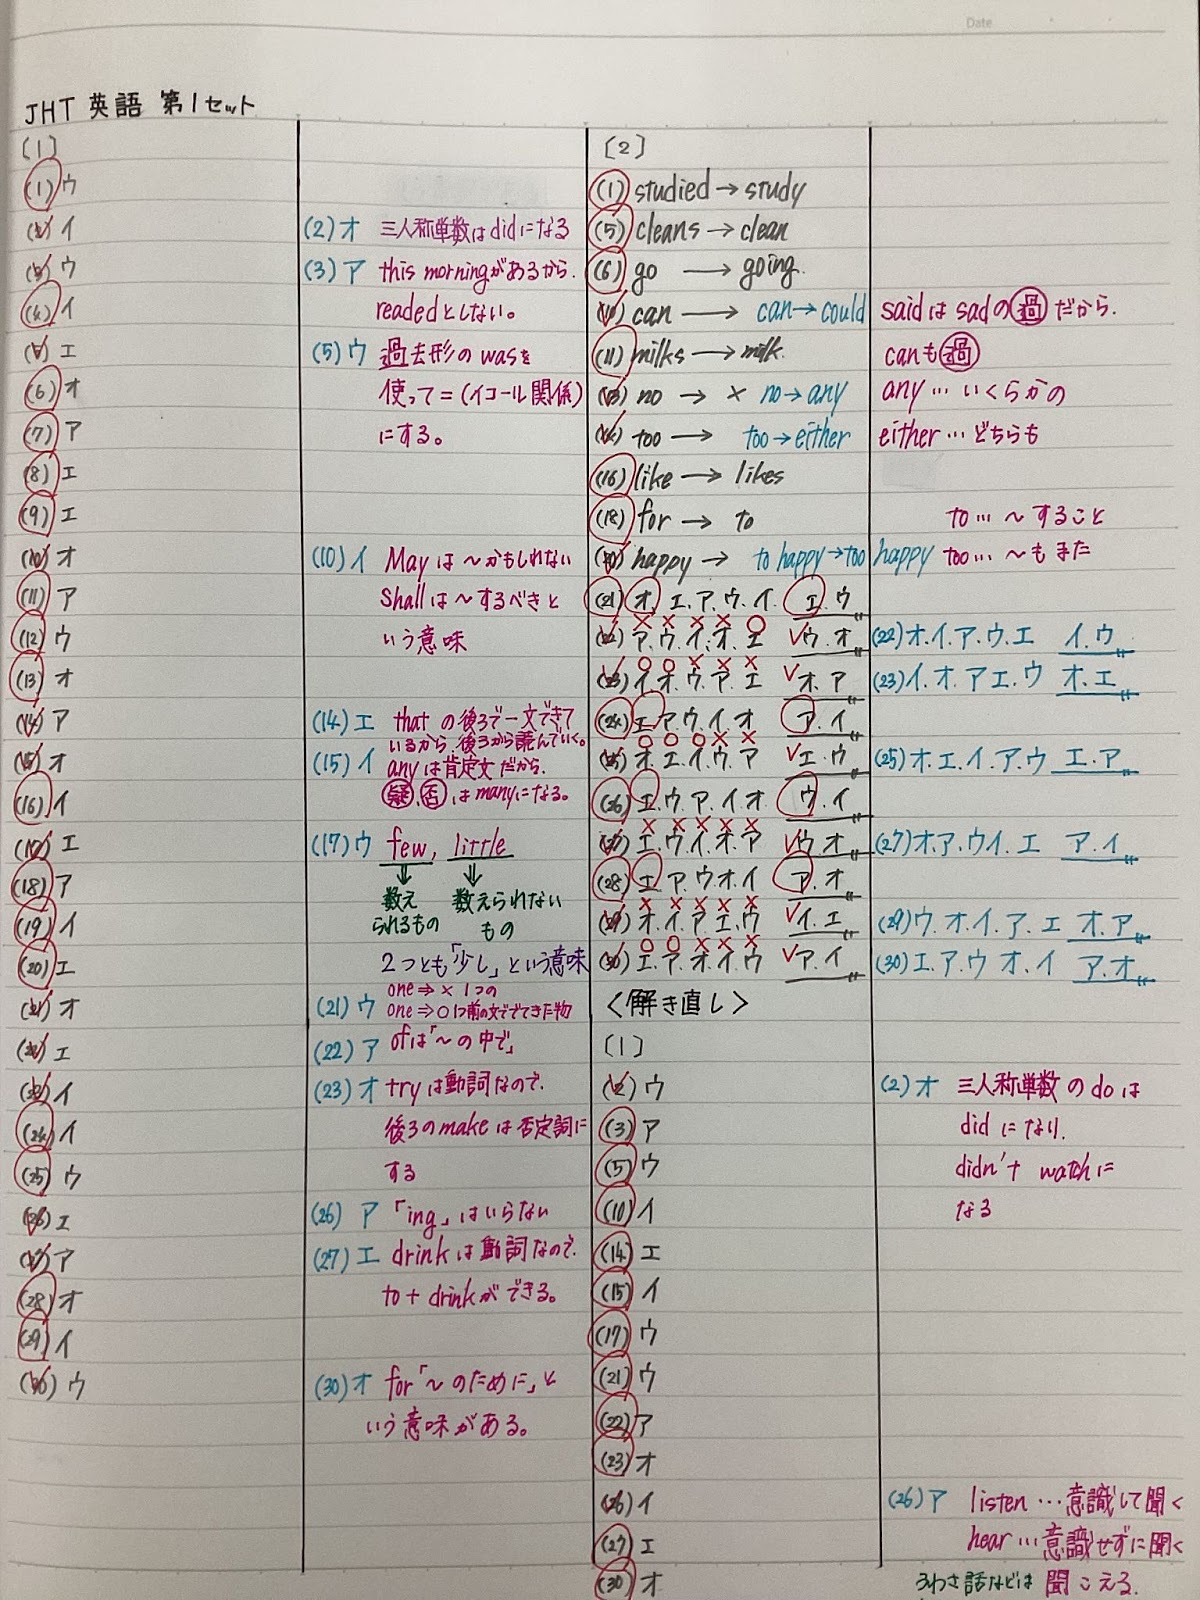 Date
JHT 英語 第1セット
[1]
(1) ウ
(2) イ
(3) ウ
(4) イ
(5) エ
(6) オ
(7) ア
(8) エ
(9) エ
(10) オ
(11) ア
(12) ウ
(13) オ
(14) ア
(15) オ
(16) イ
(17) エ
(18) ア
(19) イ
(20) エ
(21) オ
(22) エ
(23) イ
(24) イ
(25) ウ
(26) エ
(27) ア
(28) オ
(29) イ
(30) ウ
(2) オ 三人称単数はdidになる
(3) ア this morningがあるから.
readedとしない。
(5) ウ 過去形のwasを
使って=(イコール関係)
にする。
(10) イ Mayは〜かもしれない
Shallは〜するべきと
いう意味
(14) エ thatの後ろで一文できて
いるから、後ろから読んでいく。
(15) イ anyは肯定文だから.
疑.否はmanyになる。
(17) ウ few, little
⇓ ⇓
数え 数えられない
られるもの もの
2つとも「少し」という意味
one⇒× 1つの
(21) ウ one⇒○ 1つ前の文ででてきた物
(22) ア ofは「〜の中で」
(23) オ tryは動詞なので.
後ろのmakeは否定詞に
する
(26) ア 「ing」はいらない
(27) エ drinkは動詞なので.
to + drinkができる。
(30) オ for「〜のために」と
いう意味がある。
[2]
(1) studied → study
(5) cleans → clean
(6) go → going.
(10) can → can→could saidはsadの過だから.
(11) milks → milk. canも過
(13) no → × no→any any… いくらかの
(14) too → too→either either…どちらも
(16) like → likes
(18) for → to to… 〜すること
(20) happy → to happy→too happy too… 〜もまた
(21) オ.エ.ア.ウ.イ. エ.ウ
× × × × ○
(22) ア.ウ.イ.オ.エ ✓ウ.オ (22) オ.イ.ア.ウ.エ イ.ウ
○ ○ × × ×
(23) イ.オ.ウ.ア.エ ✓オ.ア (23) イ.オ.ア エ.ウ オ.エ
(24) エ.ア ウ イ オ ア.イ
○ ○ ○ × ×
(25) オ.エ.イ.ウ.ア ✓エ.ウ (25) オ.エ.イ.ア.ウ エ.ア
(26) エ.ウ.ア.イ オ ウ.イ
× × × × ×
(27) エ.ウ.イ.オ.ア ✓ウ オ (27) オ.ア.ウイ.エ ア.イ
(28) エ.ア.ウ オ イ ア.オ
× × × × ×
(29) オ.イ.ア.エ.ウ ✓イ.エ (29) ウ.オ.イ.ア.エ オ.ア
○ ○ × × ×
(30) エ.ア.オ.イ.ウ ✓ア.イ (30) エ.ア.ウ オ.イ ア.オ
<解き直し>
[1]
(2) ウ
(3) ア
(5) ウ
(10) イ
(14) エ
(15) イ
(17) ウ
(21) ウ
(22) ア
(23) オ
(26) イ
(27) エ
(30) オ
(2) オ 三人称単数のdoは
didになり.
didn't watchに
なる
(26) ア listen…意識して聞く
hear…意識せずに聞く
うわさ話などは 聞こえる.